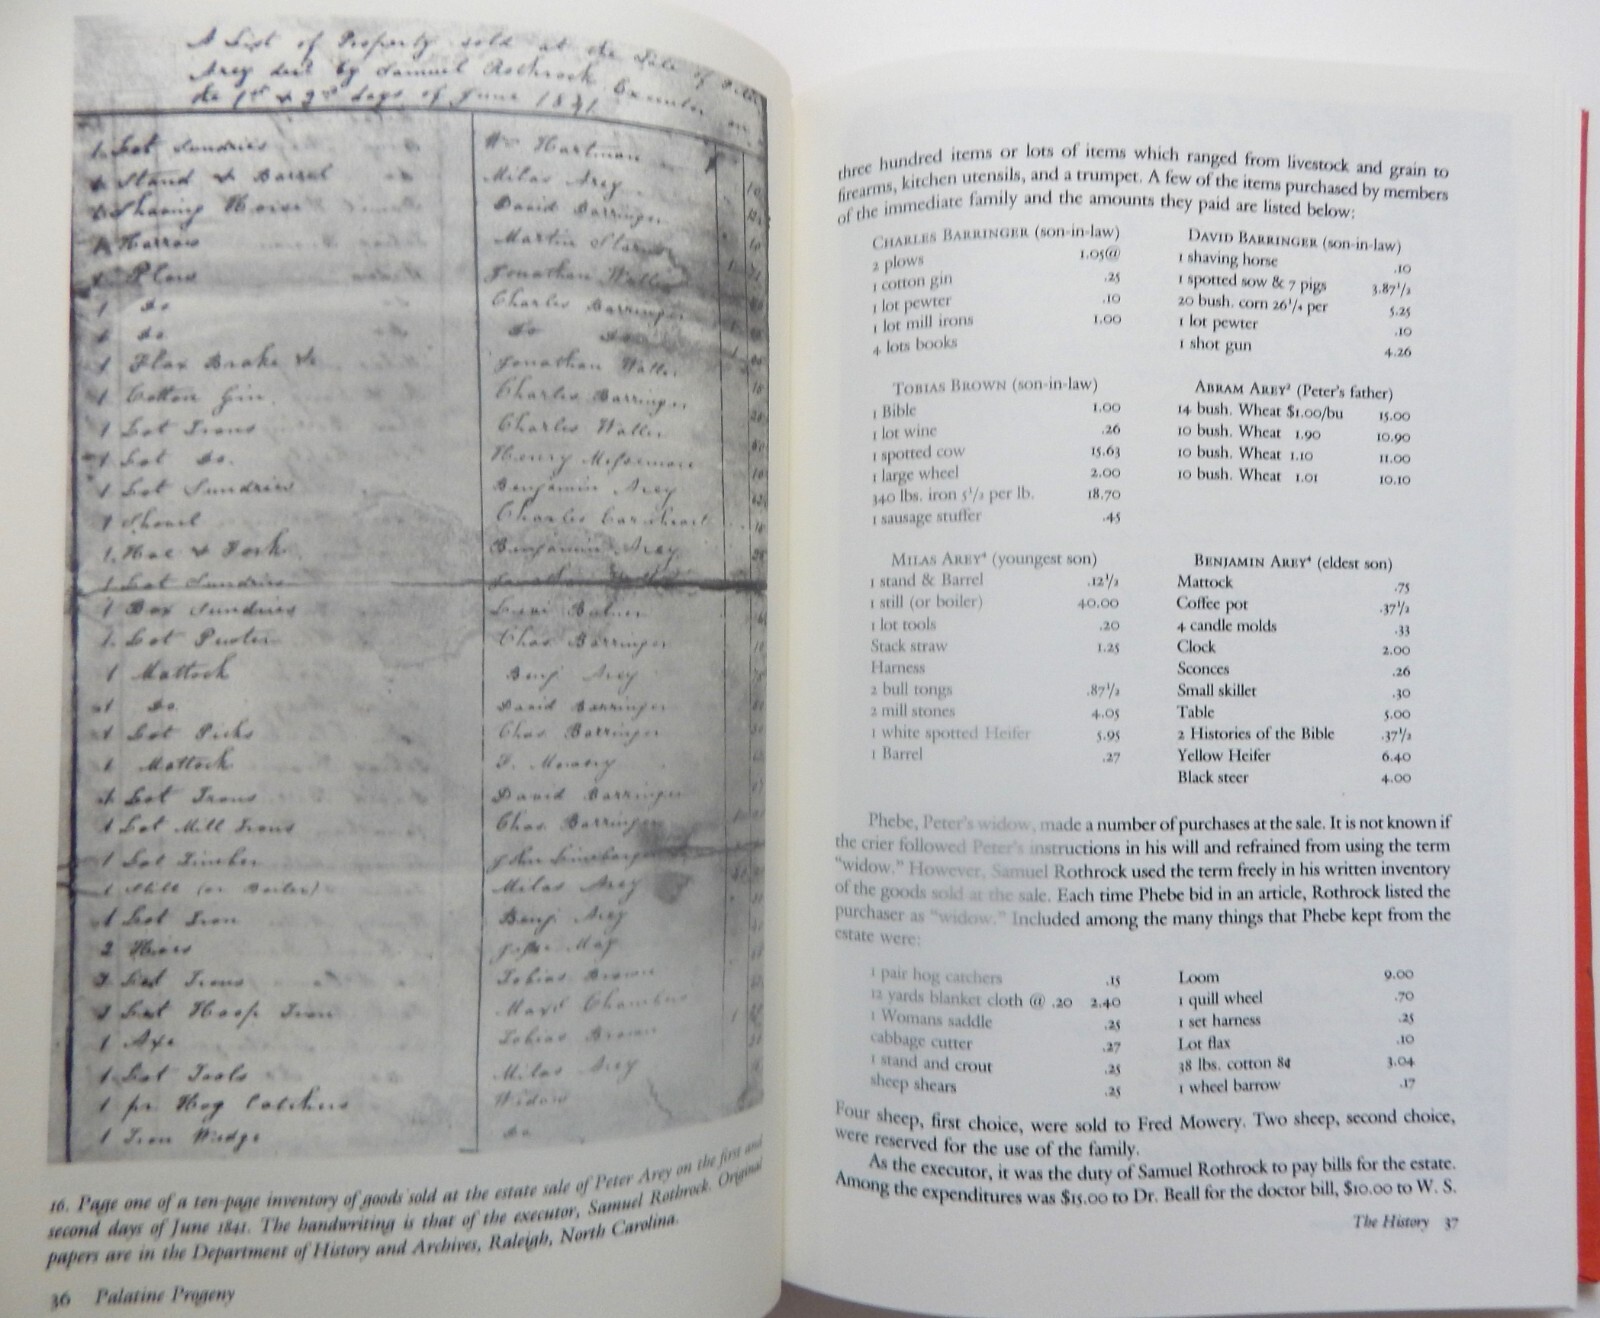 A List of Property sold at the Sale of Peter
Arey decd by Samuel Rothrock Executor on
the 1st & 2nd days of June 1841
1 Lot Sundries Wm Hartman
1 Stand & Barrel Milas Arey
1 Shaving Horse David Barringer
1 Harrow Martin
1 Plow Jonathan Waller
1 do Charles Barringer
1 do do do
1 Flax Brake & Jonathan Waller
1 Cotton Gin Charles Barringer
1 Lot Irons Charles Waller
1 Lot do. Henry
1 Lot Sundries Benjamin Arey
1 Shovel Charles
1 Hoe & Fork Benjamin Arey
1 Lot Sundries Jonathan
1 Box Sundries Levi
1 Lot Pewter Chas Barringer
1 Mattock Benj Arey
1 do. David Barringer
1 Lot Picks Chas Barringer
1 Mattock
1 Lot Irons David Barringer
1 Lot Mill Irons Chas Barringer
1 Lot Timber John
1 Still (or Boiler) Milas Arey
1 Lot Iron Benj Arey
2 Hoes
Lot Irons Tobias Brown
Lot Hoop Iron Chambers
1 Axe Tobias Brown
1 Lot Tools Milas Arey
1 pr Hog Catchers Widow
1 Iron Wedge do
16. Page one of a ten-page inventory of goods sold at the estate sale of Peter Arey on the first and
second days of June 1841. The handwriting is that of the executor, Samuel Rothrock. Original
papers are in the Department of History and Archives, Raleigh, North Carolina.
36 Palatine Progeny
three hundred items or lots of items which ranged from livestock and grain to
firearms, kitchen utensils, and a trumpet. A few of the items purchased by members
of the immediate family and the amounts they paid are listed below:
CHARLES BARRINGER (son-in-law)
2 plows 1.05@
1 cotton gin .25
1 lot pewter .10
1 lot mill irons 1.00
4 lots books
DAVID BARRINGER (son-in-law)
1 shaving horse .10
1 spotted sow & 7 pigs 3.87½
20 bush. corn 26¼ per 5.25
1 lot pewter .10
1 shot gun 4.26
TOBIAS BROWN (son-in-law)
1 Bible 1.00
1 lot wine .26
1 spotted cow 15.63
1 large wheel 2.00
340 lbs. iron 5½ per lb. 18.70
1 sausage stuffer .45
ABRAM AREY³ (Peter's father)
14 bush. Wheat $1.00/bu 15.00
10 bush. Wheat 1.90 10.90
10 bush. Wheat 1.10 11.00
10 bush. Wheat 1.01 10.10
MILAS AREY⁴ (youngest son)
1 stand & Barrel .12½
1 still (or boiler) 40.00
1 lot tools .20
Stack straw 1.25
Harness
2 bull tongs .87½
2 mill stones 4.05
1 white spotted Heifer 5.95
1 Barrel .27
BENJAMIN AREY⁴ (eldest son)
Mattock .75
Coffee pot .37½
4 candle molds .33
Clock 2.00
Sconces .26
Small skillet .30
Table 5.00
2 Histories of the Bible .37½
Yellow Heifer 6.40
Black steer 4.00
Phebe, Peter's widow, made a number of purchases at the sale. It is not known if
the crier followed Peter's instructions in his will and refrained from using the term
"widow." However, Samuel Rothrock used the term freely in his written inventory
of the goods sold at the sale. Each time Phebe bid in an article, Rothrock listed the
purchaser as "widow." Included among the many things that Phebe kept from the
estate were:
1 pair hog catchers .15
12 yards blanket cloth @ .20 2.40
1 Womans saddle .25
cabbage cutter .27
1 stand and crout .25
sheep shears .25
Loom 9.00
1 quill wheel .70
1 set harness .25
Lot flax .10
38 lbs. cotton 8¢ 3.04
1 wheel barrow .17
Four sheep, first choice, were sold to Fred Mowery. Two sheep, second choice,
were reserved for the use of the family.
As the executor, it was the duty of Samuel Rothrock to pay bills for the estate.
Among the expenditures was $15.00 to Dr. Beall for the doctor bill, $10.00 to W. S.
The History 37